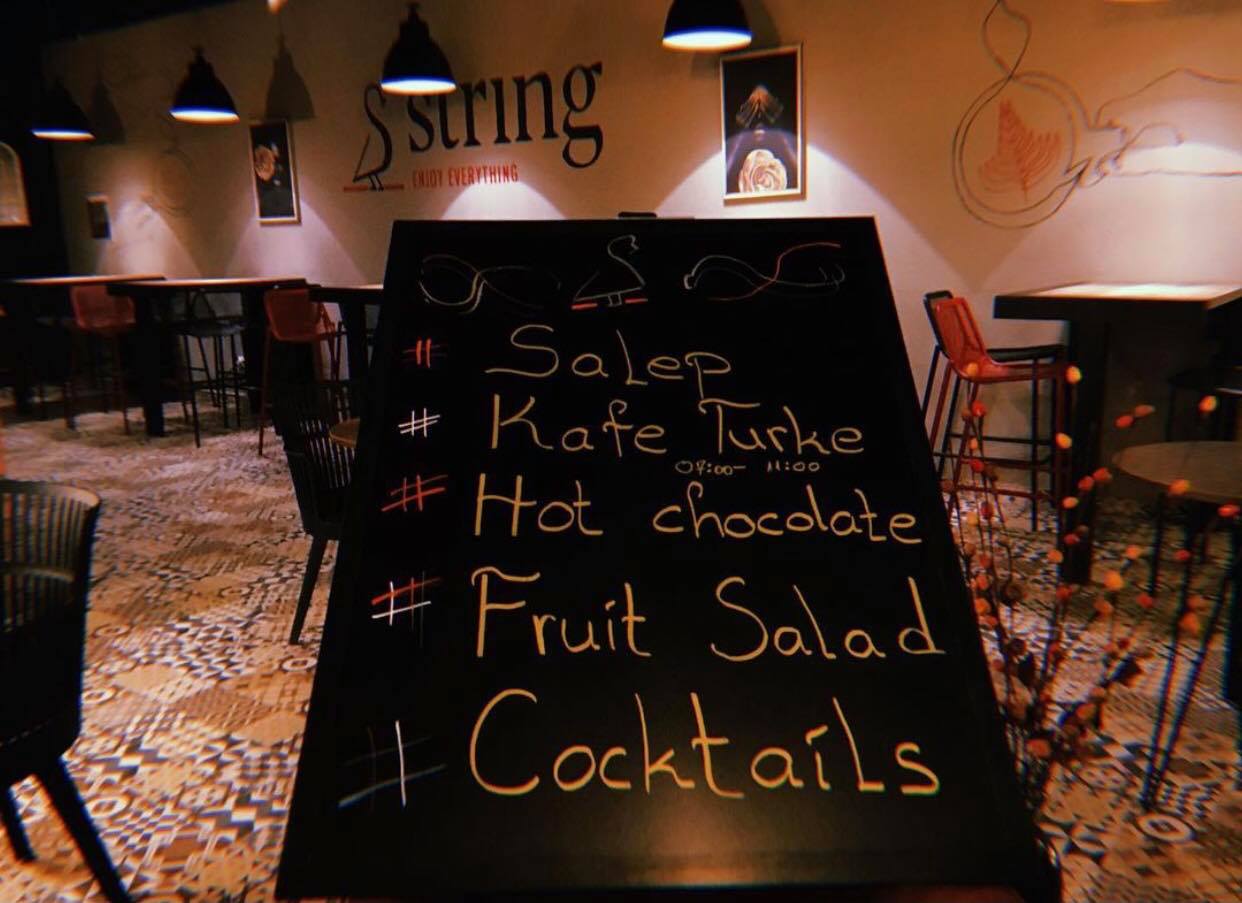 string
ENJOY EVERYTHING
# Salep
# Kafe Turke
07:00- 11:00
# Hot chocolate
# Fruit Salad
# Cocktails